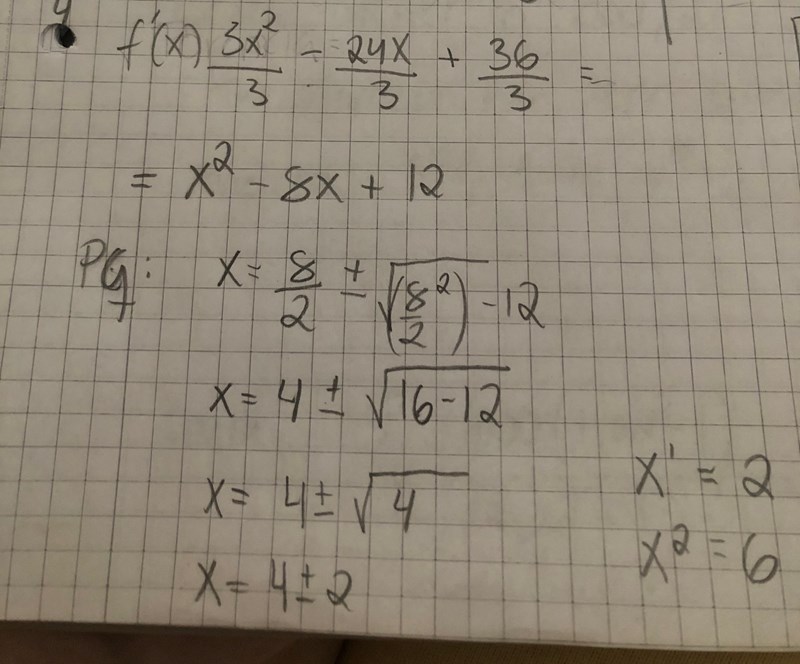 4
f'(x) 3x²/3 - 24x/3 + 36/3 =
= x² - 8x + 12
PQ: x = 8/2 ± √(8²/2) - 12
x = 4 ± √16-12
x = 4 ± √4
x' = 2
x² = 6
x = 4 ± 2